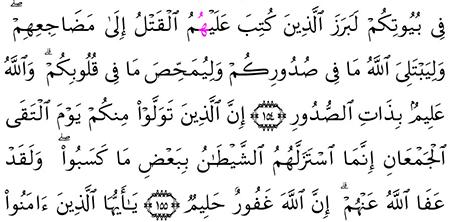 فِى بُيُوتِكُمْ لَبَرَزَ ٱلَّذِينَ كُتِبَ عَلَيْهِمُ ٱلْقَتْلُ إِلَىٰ مَضَاجِعِهِمْ ۖ
وَلِيَبْتَلِىَ ٱللَّهُ مَا فِى صُدُورِكُمْ وَلِيُمَحِّصَ مَا فِى قُلُوبِكُمْ ۗ وَٱللَّهُ
عَلِيمٌۢ بِذَاتِ ٱلصُّدُورِ ﴿١٥٤﴾ إِنَّ ٱلَّذِينَ تَوَلَّوْا۟ مِنكُمْ يَوْمَ ٱلْتَقَى
ٱلْجَمْعَانِ إِنَّمَا ٱسْتَزَلَّهُمُ ٱلشَّيْطَـٰنُ بِبَعْضِ مَا كَسَبُوا۟ ۖ وَلَقَدْ
عَفَا ٱللَّهُ عَنْهُمْ ۗ إِنَّ ٱللَّهَ غَفُورٌ حَلِيمٌ ﴿١٥٥﴾ يَـٰٓأَيُّهَا ٱلَّذِينَ ءَامَنُوا۟